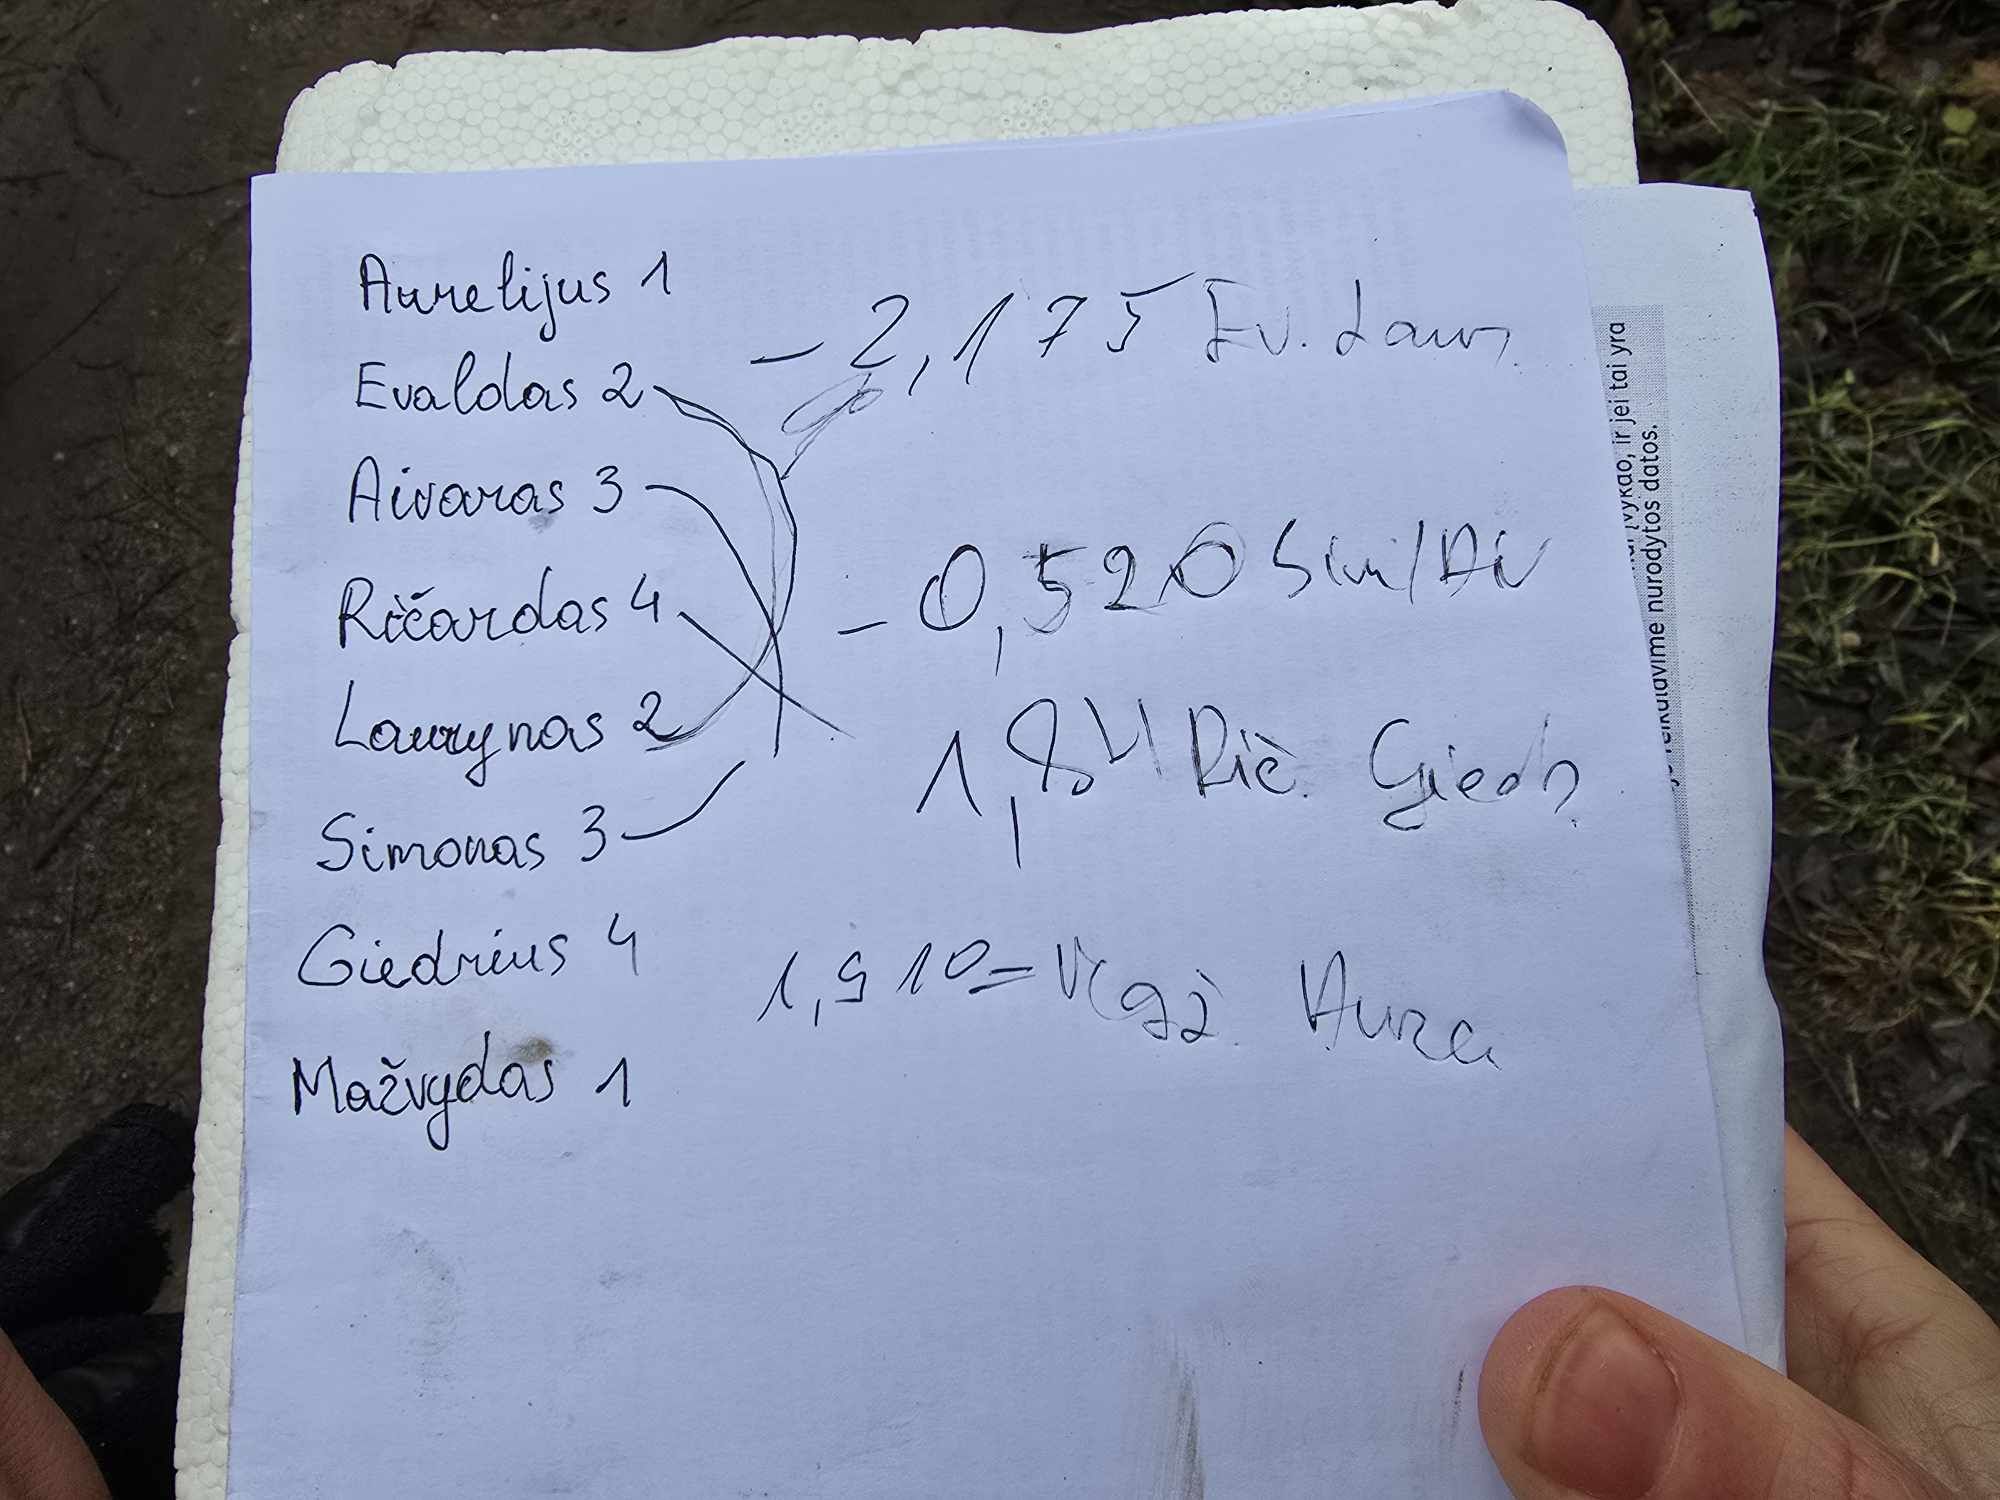 Aurelijus 1
Evaldas 2
Aivaras 3
Ričardas 4
Laurynas 2
Simonas 3
Giedrius 4
Mažvydas 1
- 2,175 Ev. Laur.
- 0,520 Sim/Aiv
1,84 Rič. Giedr.
1,910 = Aure
, ir jei tai yra
nurodytos datos.